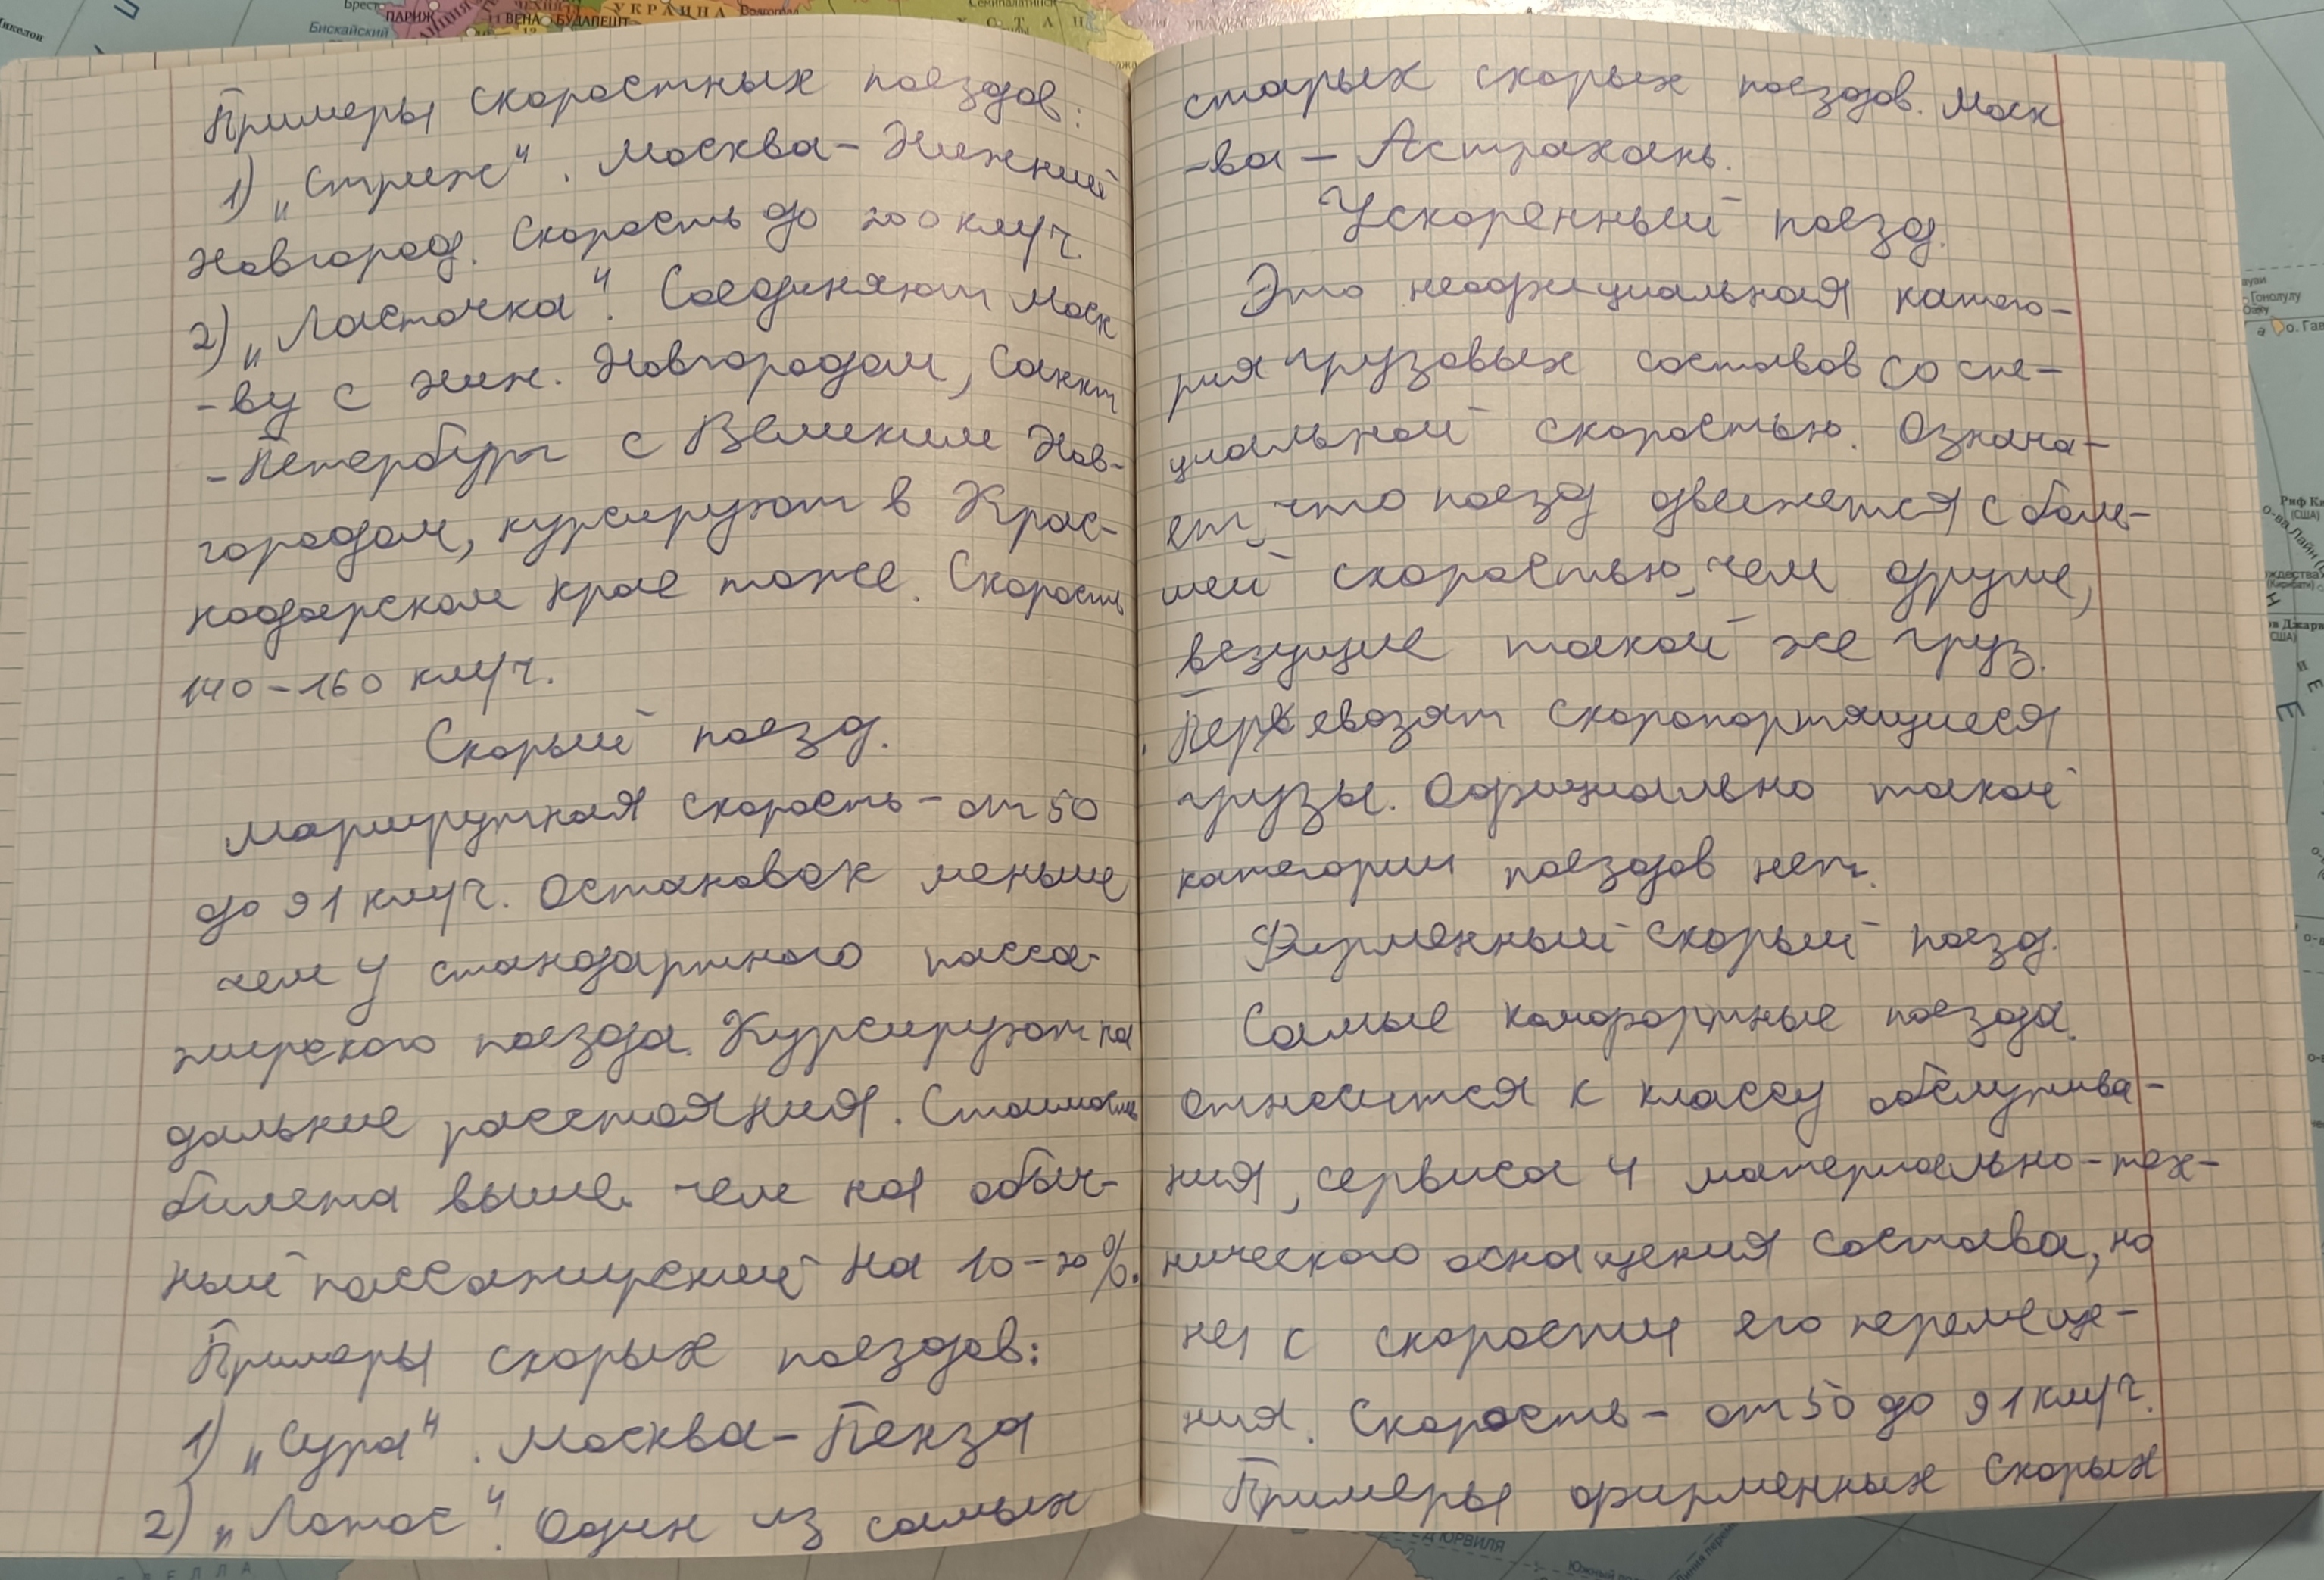 Примеры скоростных поездов:
1) „Стриж". Москва-Нижний
Новгород. Скорость до 200 км/ч.
2) „Ласточка". Соединяют Моск
-ву с Ниж. Новгородом, Санкт
-Петербург с Великим Нов-
городом, курсируют в Крас-
нодарском крае тоже. Скорость
140-160 км/ч.
Скорый поезд.
Маршрутная скорость - от 50
до 91 км/ч. Остановок меньше
чем у стандартного пасса-
жирского поезда. Курсируют на
дальние расстояния. Стоимость
билета выше чем на обыч-
ный пассажирский на 10-20%.
Примеры скорых поездов:
1) „Сура". Москва-Пенза
2) „Лотос". Один из самых
старых скорых поездов. Моск
-ва - Астрахань.
Ускоренный поезд.
Это неофициальная катего-
рия грузовых составов со спе-
циальной скоростью. Означа-
ет, что поезд движется с боль-
шей скоростью, чем другие,
везущие такой же груз.
Перевозят скоропортящиеся
грузы. Официально такой
категории поездов нет.
Фирменный скорый поезд.
Самые комфортные поезда.
Относится к классу обслужива-
ния, сервиса и материально-тех-
нического оснащения состава, но
не с скорости его перемеще-
ния. Скорость - от 50 до 91 км/ч.
Примеры фирменных скорых
ПАРИЖ
ВЕНА
БУДАПЕШТ
УКРАИНА
Волгоград
Бискайский
Брест
о. Гав
Гонолулу
Риф Ки
(США)
(США)